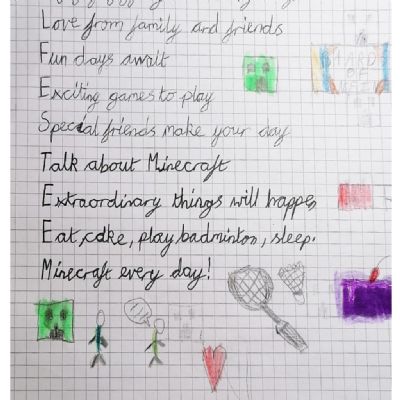 Love from family and friends
Fun days await
Exciting games to play
Special friends make your day
Talk about Minecraft
Extraordinary things will happen
Eat, cake, play badminton, sleep.
Minecraft every day!